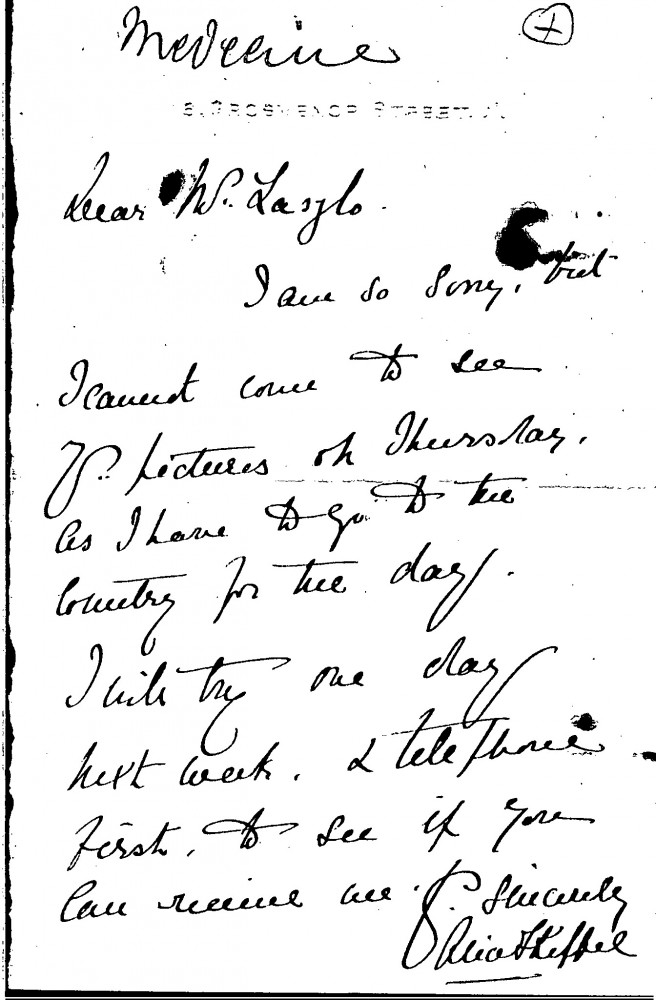 Medecine
+
6, GROSVENOR STREET. W.
Dear Mr. Laszlo.
I am so sorry, but
I cannot come to see
Yr. pictures on Thursday.
as I have to go to the
Country for the day.
I will try one day
next week. & telephone
first, to see if you
Can receive me. Yr. Sincerely
Alice F Keppel